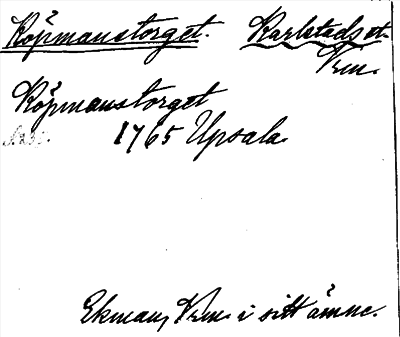 Köpmanstorget. Karlstads st.
Vrm.
Köpmanstorget
1765 Upsala
Ekman, Vrm. i sitt ämne.